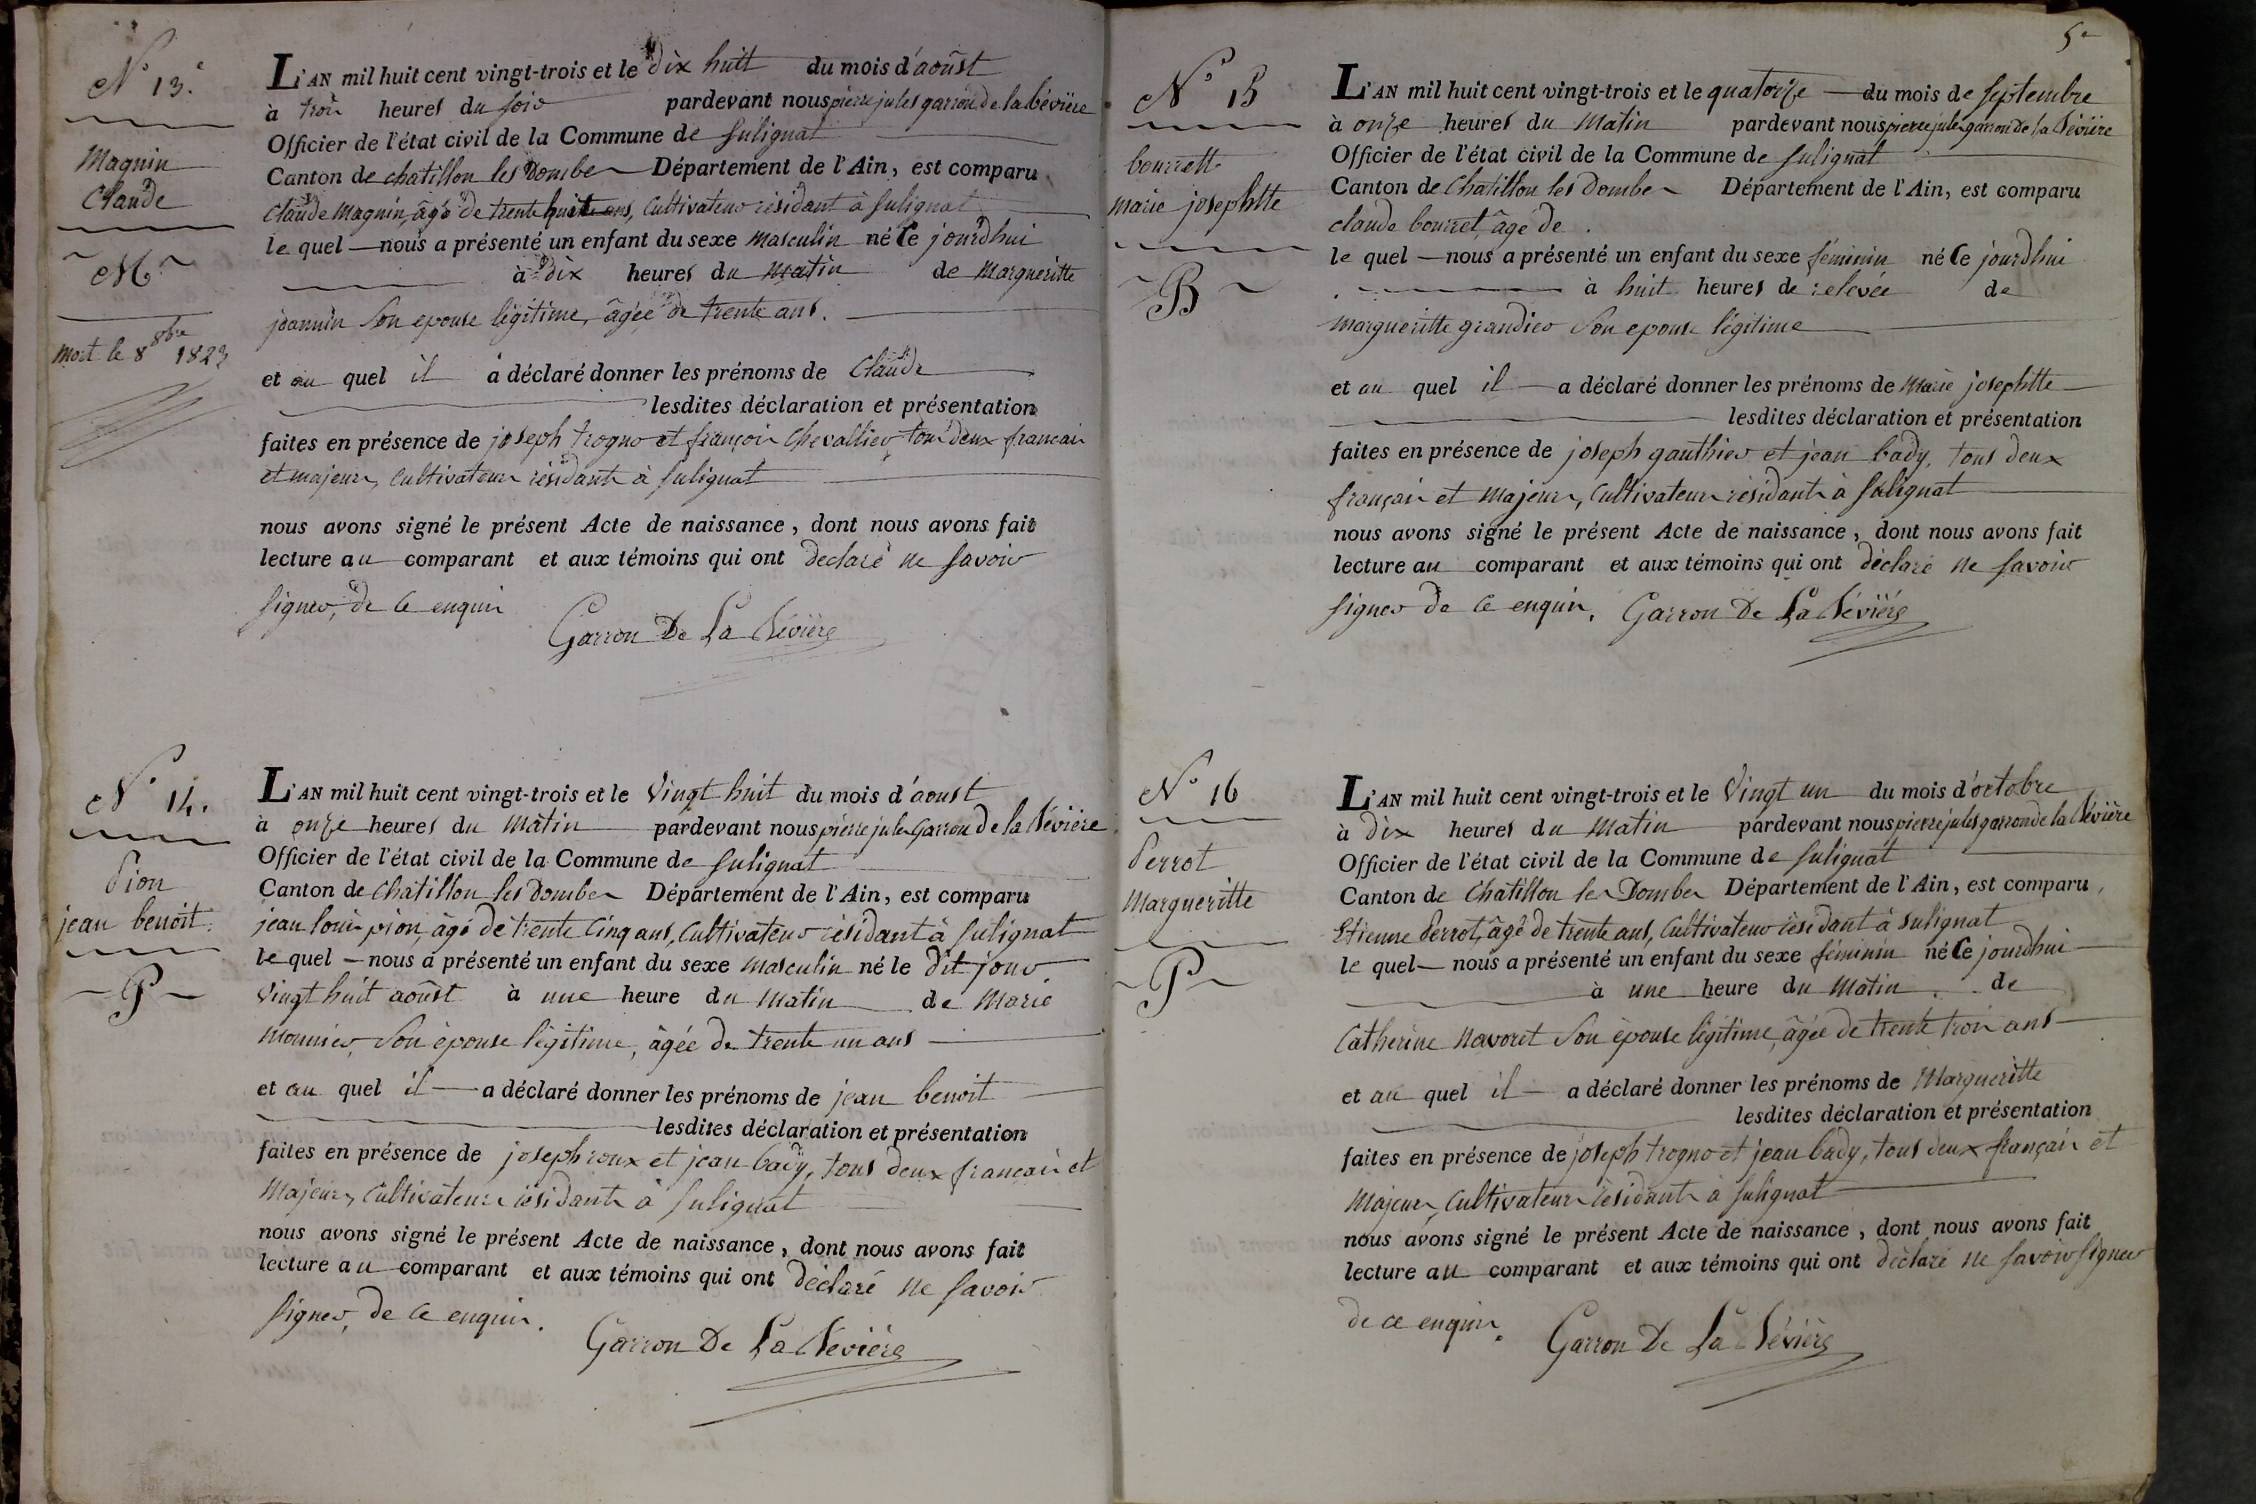 N° 13.e
Magnin
Claude
M
mort le 8 8bre 1823
L'AN mil huit cent vingt-trois et le dix huit du mois d'aoûst
à trois heures du soir pardevant nous pierre jules garron de la bévière
Officier de l'état civil de la Commune de Sulignat
Canton de chatillon les Dombes Département de l'Ain, est comparu
Claude Magnin, âgé de trente huit ans, Cultivateur résidant à Sulignat
le quel nous a présenté un enfant du sexe masculin né Ce jourdhui
à dix heures du matin de Margueritte
jeannin Son epouse légitime, âgée de trente ans.
et au quel il a déclaré donner les prénoms de Claude
lesdites déclaration et présentation
faites en présence de joseph trogno et françois Chevallier, tous deux francais
et majeurs, Cultivateurs résidants à Sulignat
nous avons signé le présent Acte de naissance, dont nous avons fait
lecture au comparant et aux témoins qui ont declaré ne Savoir
Signer, de Ce enquis
Garron De La Bévière
N° 14.
Pion
jean benoit.
P
L'AN mil huit cent vingt-trois et le Vingt huit du mois d'aoust
à onze heures du Matin pardevant nous pierre jules Garron de la Bévière
Officier de l'état civil de la Commune de Sulignat
Canton de Chatillon les Dombes Département de l'Ain, est comparu
jean louis pion, âgé de trente Cinq ans, Cultivateur résidant à Sulignat
le quel nous a présenté un enfant du sexe masculin né le dit jour
Vingt huit aoûst à une heure du Matin de Marie
Monnier, Son épouse légitime, âgée de trente un ans
et au quel il a déclaré donner les prénoms de jean benoit
lesdites déclaration et présentation
faites en présence de joseph roux et jean bady, tous deux francais et
Majeurs, Cultivateurs résidants à Sulignat
nous avons signé le présent Acte de naissance, dont nous avons fait
lecture au comparant et aux témoins qui ont déclaré ne Savoir
Signer, de Ce enquis.
Garron De La Bévière
5e
N° 15
bourrett
marie josephtte
B
L'AN mil huit cent vingt-trois et le quatorze du mois de Septembre
à onze heures du Matin pardevant nous pierre jules garron de la Bévière
Officier de l'état civil de la Commune de Sulignat
Canton de Chatillon les Dombes Département de l'Ain, est comparu
claude bourret, âgé de .
le quel nous a présenté un enfant du sexe féminin né Ce jourdhui
à huit heures de relevée de
margueritte grandier Son epouse légitime
et au quel il a déclaré donner les prénoms de Marie josephtte
lesdites déclaration et présentation
faites en présence de joseph gauthier et jean bady, tous deux
français et Majeurs, Cultivateurs résidants à Sulignat
nous avons signé le présent Acte de naissance, dont nous avons fait
lecture au comparant et aux témoins qui ont déclaré ne Savoir
Signer de Ce enquis. Garron De La Bévière
N° 16
Perrot
Margueritte
P
L'AN mil huit cent vingt-trois et le Vingt un du mois d'octobre
à dix heures du Matin pardevant nous pierre jules garron de la Bévière
Officier de l'état civil de la Commune de Sulignat
Canton de Chatillon les Dombes Département de l'Ain, est comparu,
Etienne Perrot, âgé de trente ans, Cultivateur résidant à Sulignat
le quel nous a présenté un enfant du sexe féminin né Ce jourdhui
à une heure du Matin de
Catherine Navoret Son épouse légitime, âgée de trente trois ans
et au quel il a déclaré donner les prénoms de Margueritte
lesdites déclaration et présentation
faites en présence de joseph trogno et jean bady, tous deux français et
Majeurs, Cultivateurs résidants à Sulignat
nous avons signé le présent Acte de naissance, dont nous avons fait
lecture au comparant et aux témoins qui ont déclaré ne Savoir Signer
de ce enquis.
Garron De La Bévière